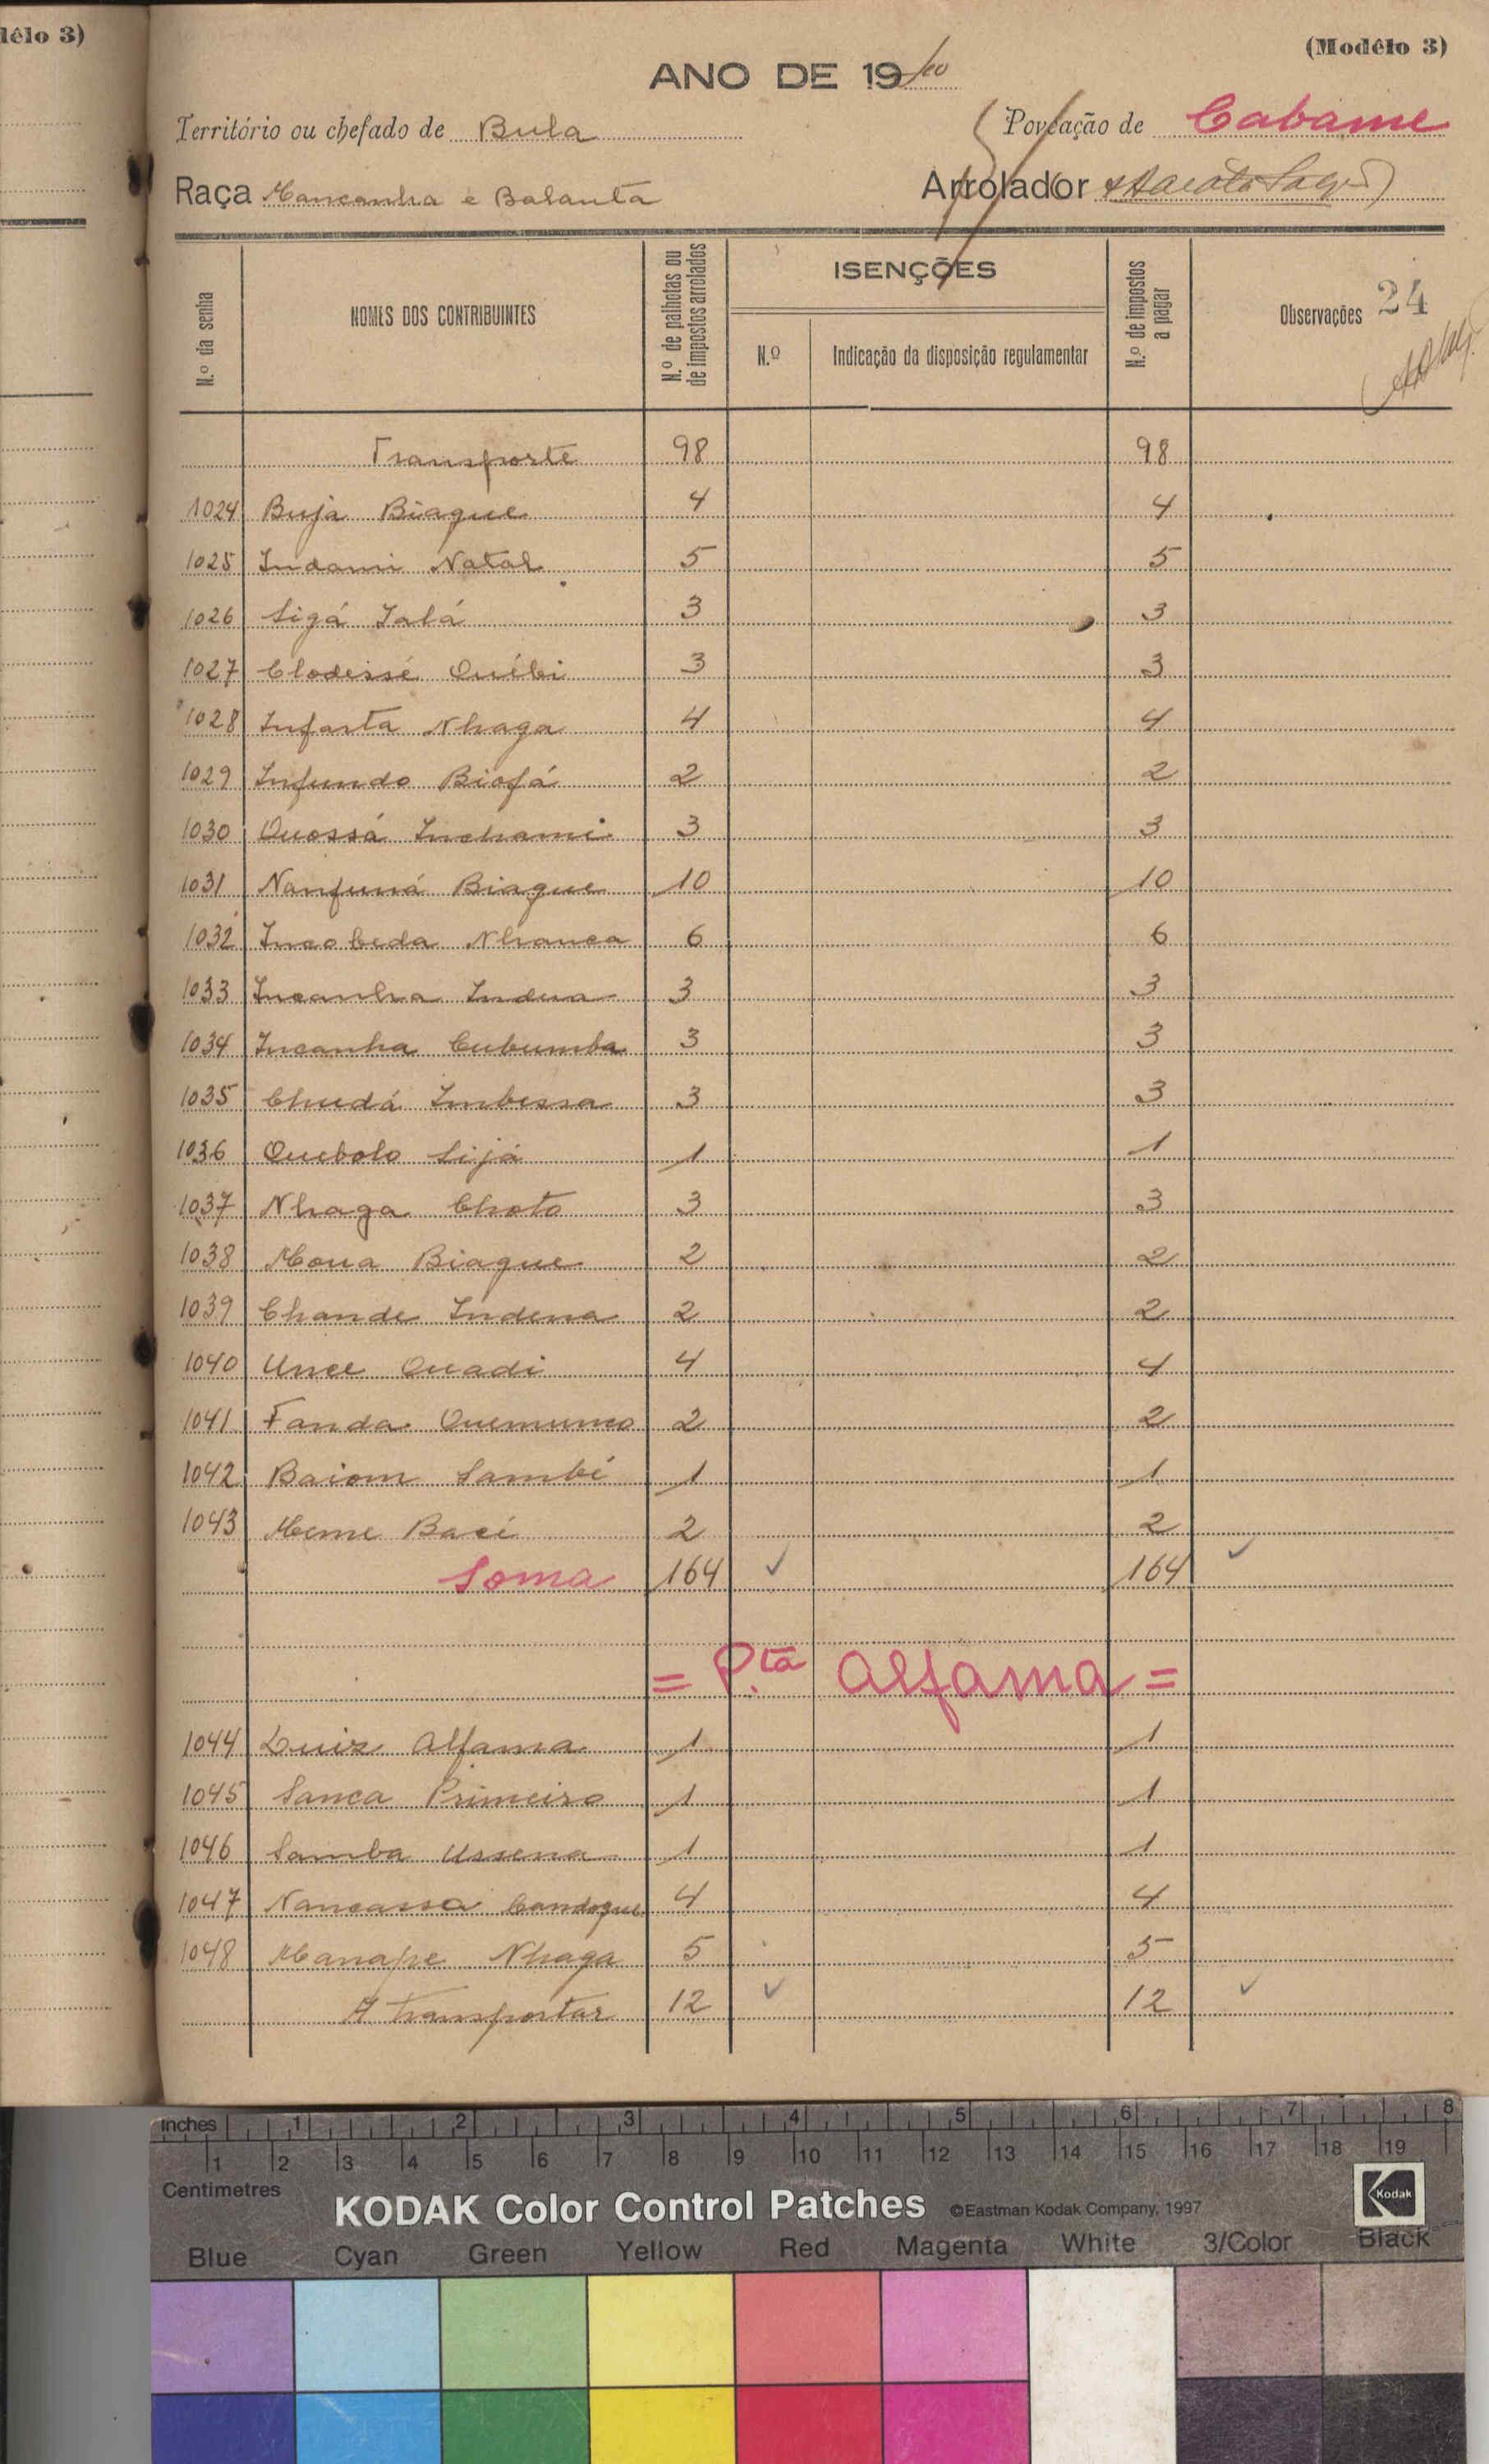 lêlo 3)
(Modêlo 3)
ANO DE 19
Território ou chefado de Bula
Povoação de Cabame
Raça Mancanha e Balanta
Arrolador
N.º da senha
NOMES DOS CONTRIBUINTES
N.º de palhotas ou de impostos arrolados
ISENÇÕES
N.º
Indicação da disposição regulamentar
N.º de impostos a pagar
Observações 24
Transporte 98 98
1024 Buja Biague 4 4
1025 Indami Natal 5 5
1026 Sigá Ialá 3 3
1027 Clodessé Québi 3 3
1028 Infanta Nhaga 4 4
1029 Infundo Biofá 2 2
1030 Quossá Inchami 3 3
1031 Nanfuná Biague 10 10
1032 Incobeda Nhanca 6 6
1033 Incanha Indua 3 3
1034 Incanha Cubumba 3 3
1035 Chudá Imbessa 3 3
1036 Quebolo Sijá 1 1
1037 Nhaga Choto 3 3
1038 Moua Biague 2 2
1039 Chande Indena 2 2
1040 Unce Quadi 4 4
1041 Fanda Quemumo 2 2
1042 Baiom Sambé 1 1
1043 Meme Bacé 2 2
Soma 164 ✓ 164 ✓
= P.ta Alfama =
1044 Luiz Alfama 1 1
1045 Sanca Primeiro 1 1
1046 Samba Ussena 1 1
1047 Nancassa Candoque 4 4
1048 Manape Nhaga 5 5
A transportar 12 ✓ 12 ✓
Inches 1 2 3 4 5 6 7 8
1 2 3 4 5 6 7 8 9 10 11 12 13 14 15 16 17 18 19
Centimetres
KODAK Color Control Patches ©Eastman Kodak Company, 1997 Kodak
Blue Cyan Green Yellow Red Magenta White 3/Color Black